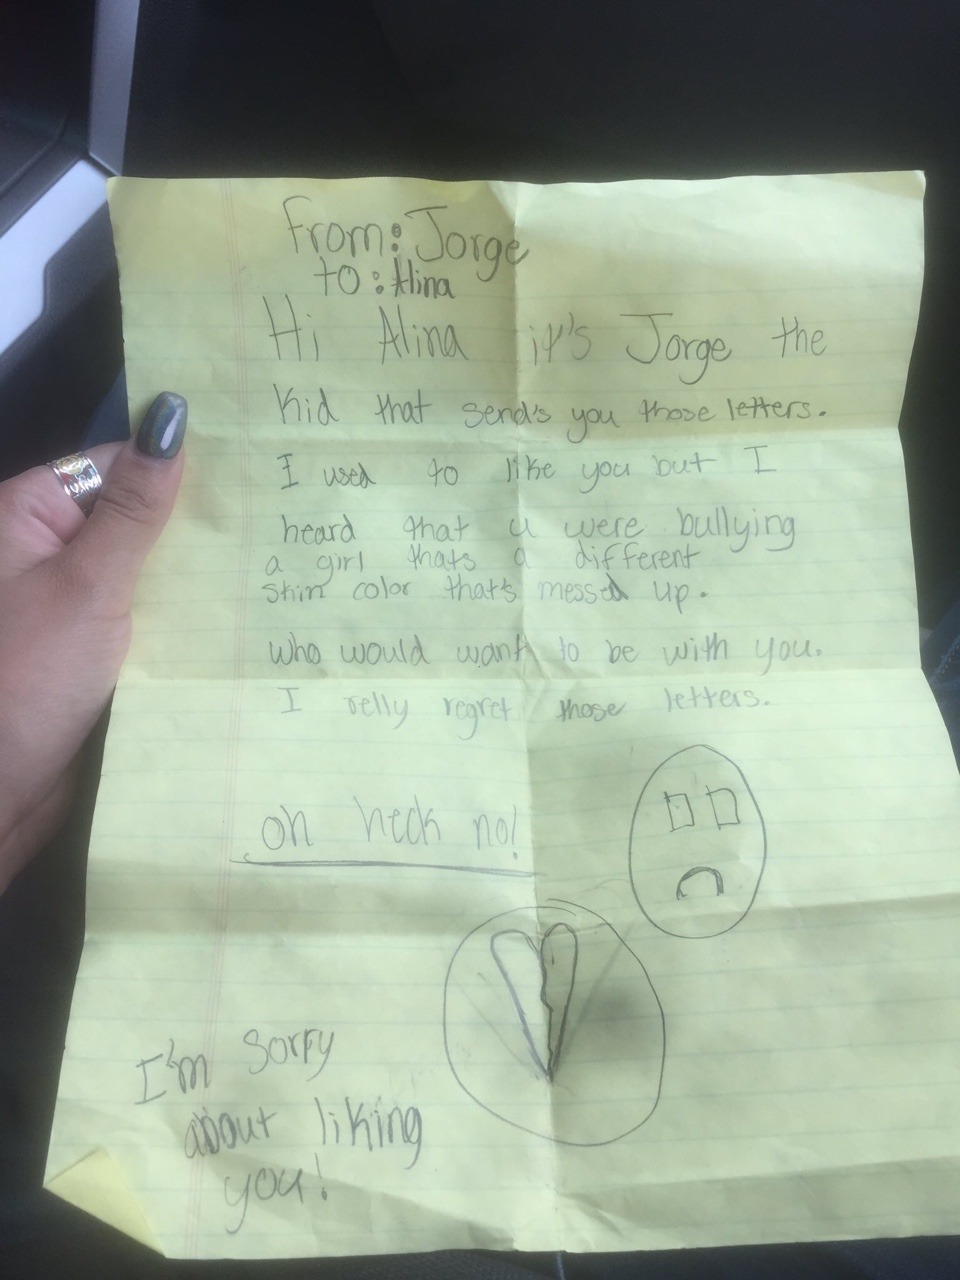 From: Jorge
to: Alina
Hi Alina it's Jorge the
Kid that send's you those letters.
I used to like you but I
heard that u were bullying
a girl thats a different
skin color that's messed up.
who would want to be with you.
I relly regret those letters.
oh heck no!
I'm sorry
about liking
you!